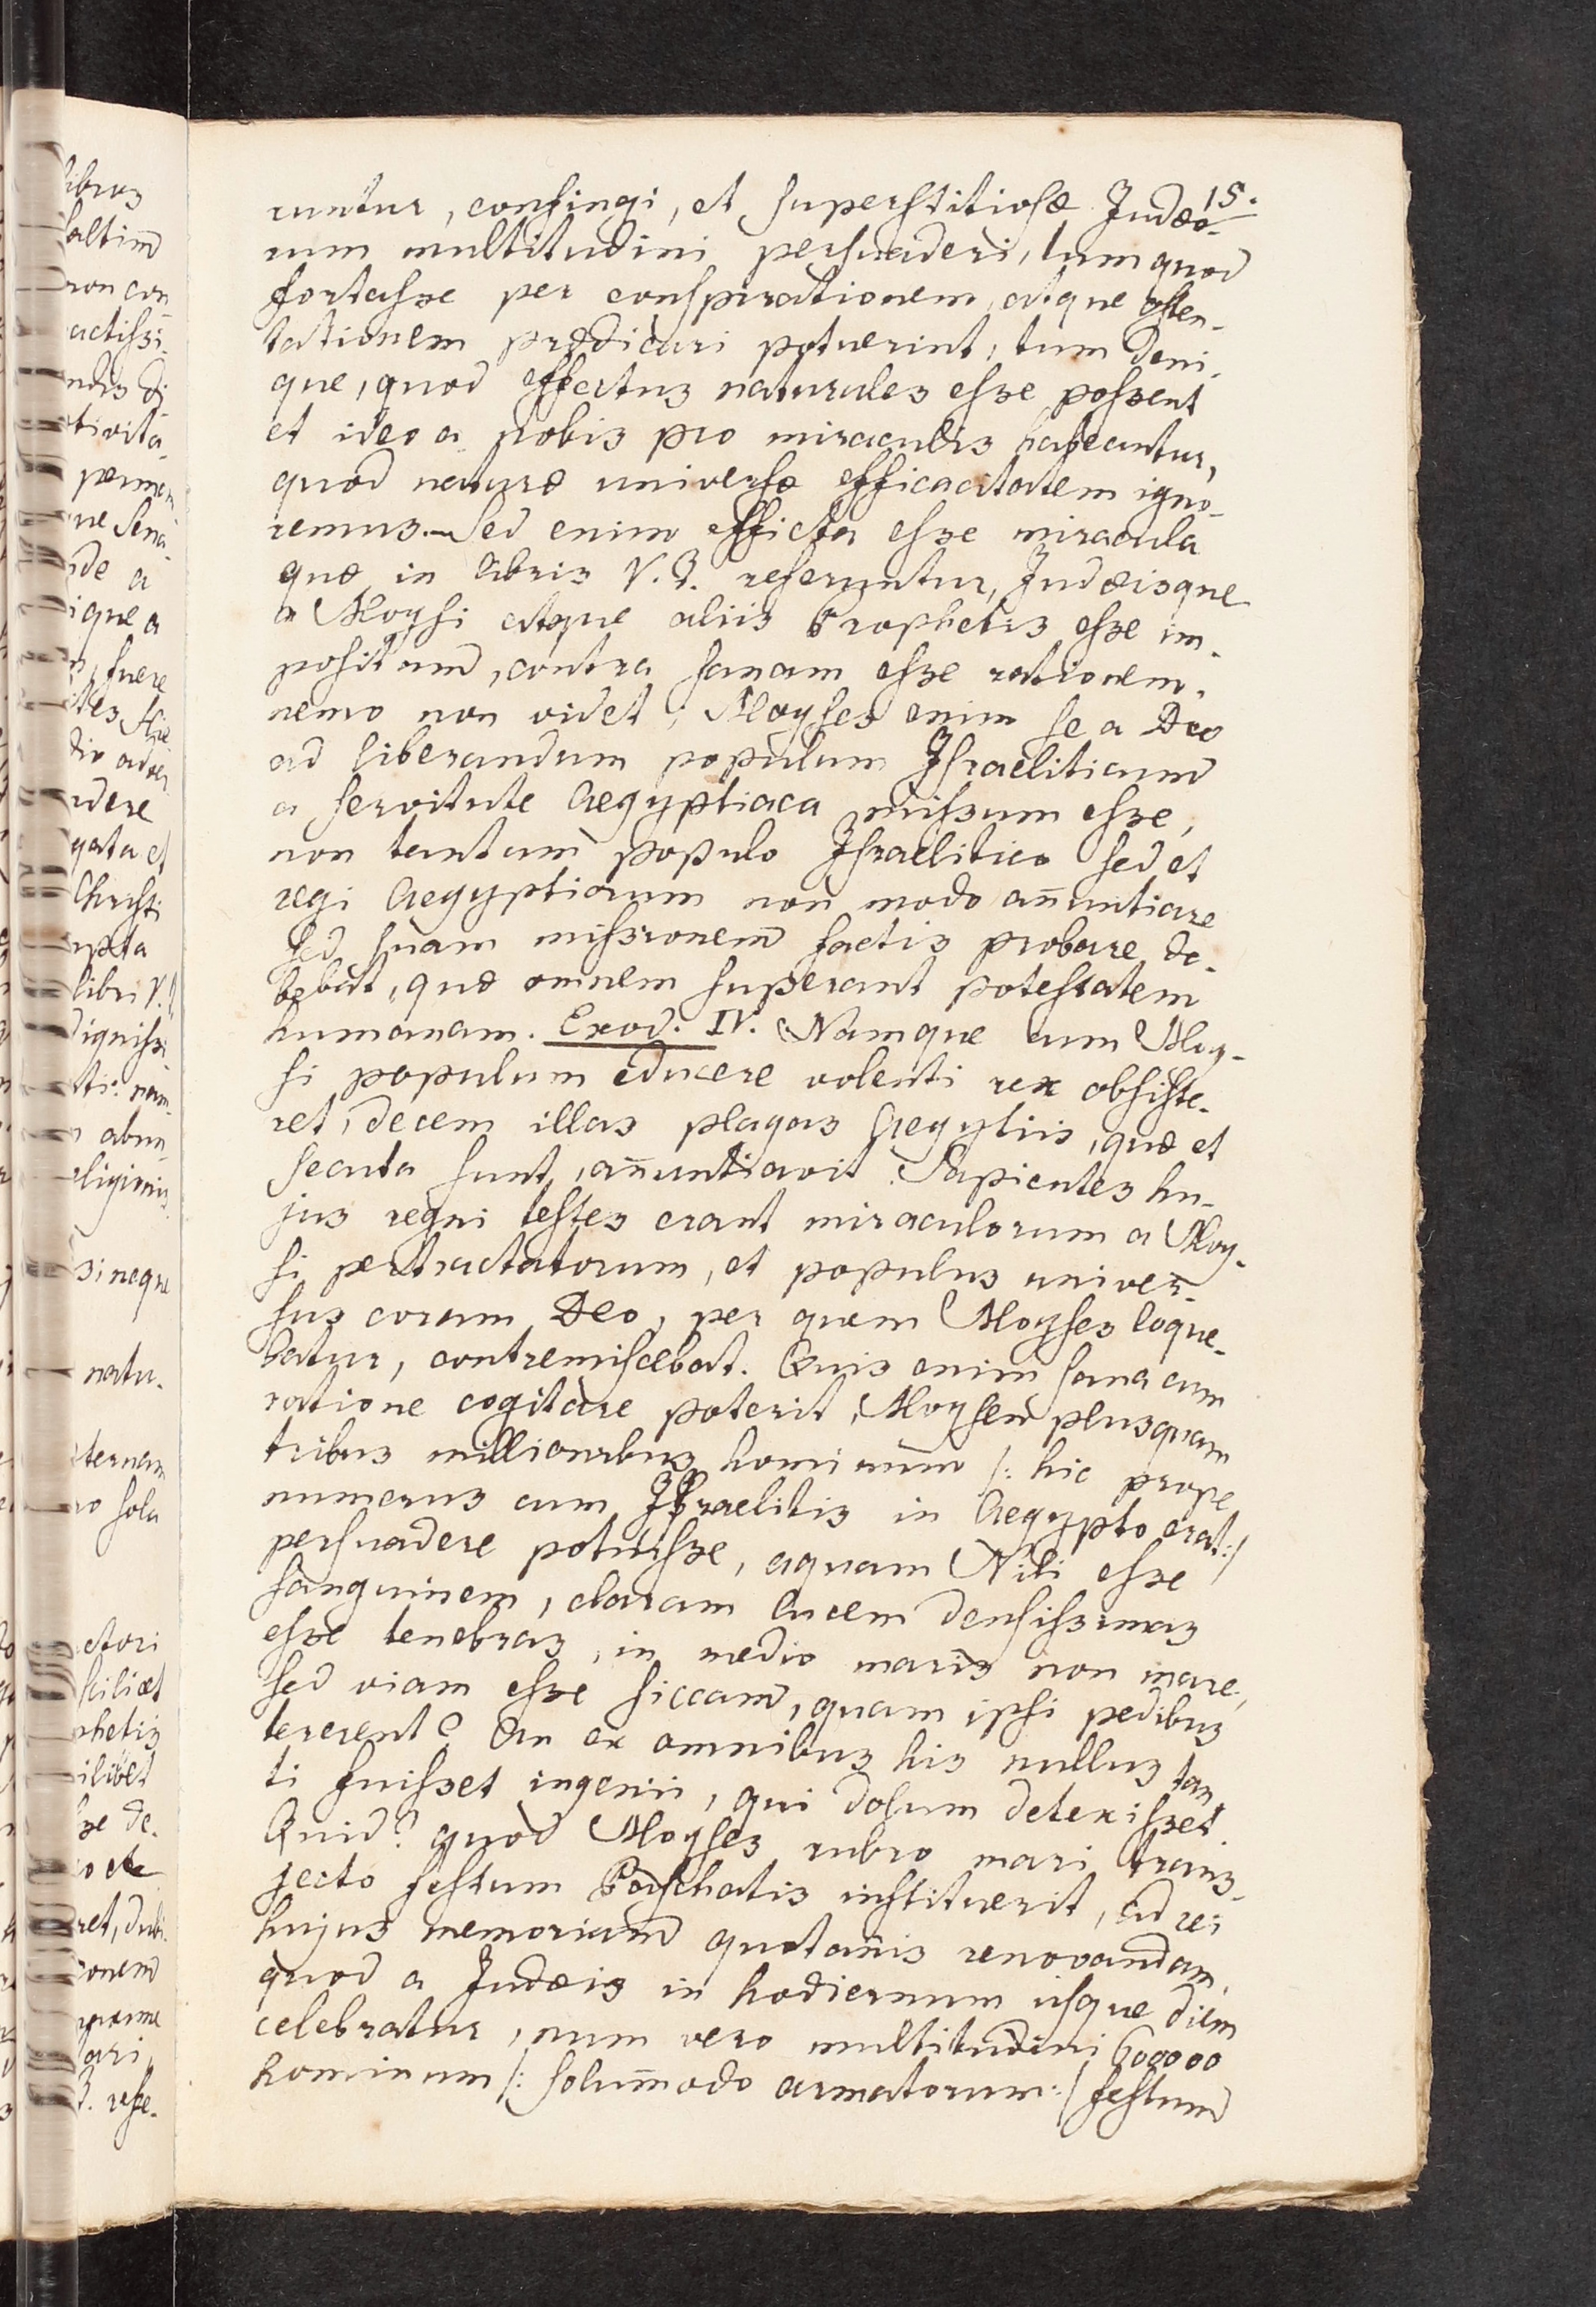 15.
runtur, confingi, et superstitiosæ Judæo-
rum multitudini persuaderi, tum quod
fortasse per conspirationem, atque osten-
tationem prædicari potuerint, tum deni-
que, quod effectus naturales esse possent
et ideo a nobis pro miraculis habeantur,
quod naturæ universæ efficacitatem igno-
remus. Sed enim efficta esse miracula
quæ in libris V. T. referuntur, Judæisque
a Moysi atque aliis Prophetis esse im-
positum, contra sanam esse rationem,
nemo non videt; Moyses enim se a Deo
ad liberandum populum Israeliticum
a servitute Aegyptiaca missum esse,
non tantum populo Israelitico sed et
regi Aegyptiorum non modo añuntiare
sed suam missionem factis probare de-
bebat, quæ omnem superant potestatem
humanam. Exod. IV. Namque cum Moy-
si populum educere volenti rex obsiste-
ret, decem illas plagas Aegytiis, quæ et
secuta sunt, añuntiavit. Sapientes hu-
jus regni testes erant miraculorum a Moy-
si pertractatorum, et populus univer-
sus coram Deo, per quem Moyses loque-
batur, contremiscebat. Quis enim sana cum
ratione cogitare poterit, Moysen plusquam
tribus millionibus hominum /: hic prope
numerus cum Israelitis in Aegypto erat :/
persuadere potuisse, aquam Nili esse
sanguinem, claram lucem densissimas
esse tenebras, in medio maris non mare,
sed viam esse siccam, quam ipsi pedibus
tererent? An ex omnibus his nullus tan-
ti fuisset ingenii, qui dolum detexisset
Quid? quod Moyses rubro mari trans-
jecto festum Paschatis instituerit, ad rei
hujus memoriam quotañis renovandam,
quod a Judæis in hodiernum usque diem
celebratur, num vero multitudini 600000
hominum /: solum̃odo armatorum :/ festum